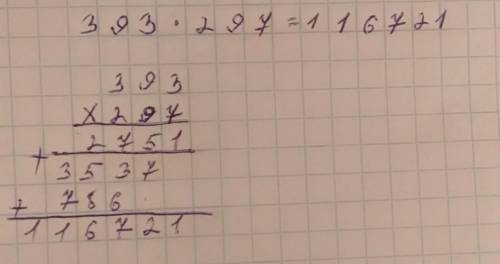 393 · 297 = 116721
393
× 297
2751
+ 3537
+ 786
116721